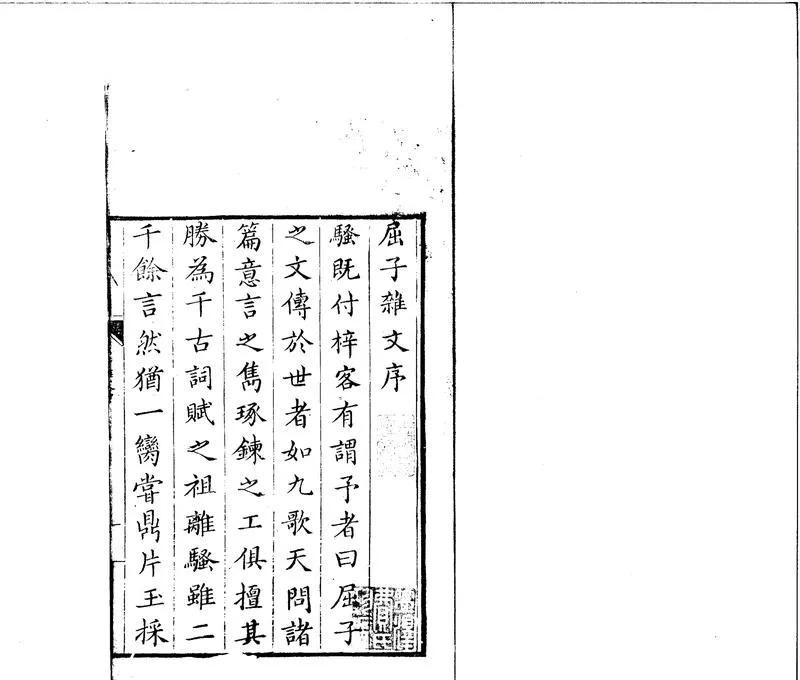 屈子雜文序
騷既付梓客有謂予者曰屈子
之文傳於世者如九歌天問諸
篇意言之雋琢鍊之工俱擅其
勝為千古詞賦之祖離騷雖二
千餘言然猶一臠甞鼎片玉採